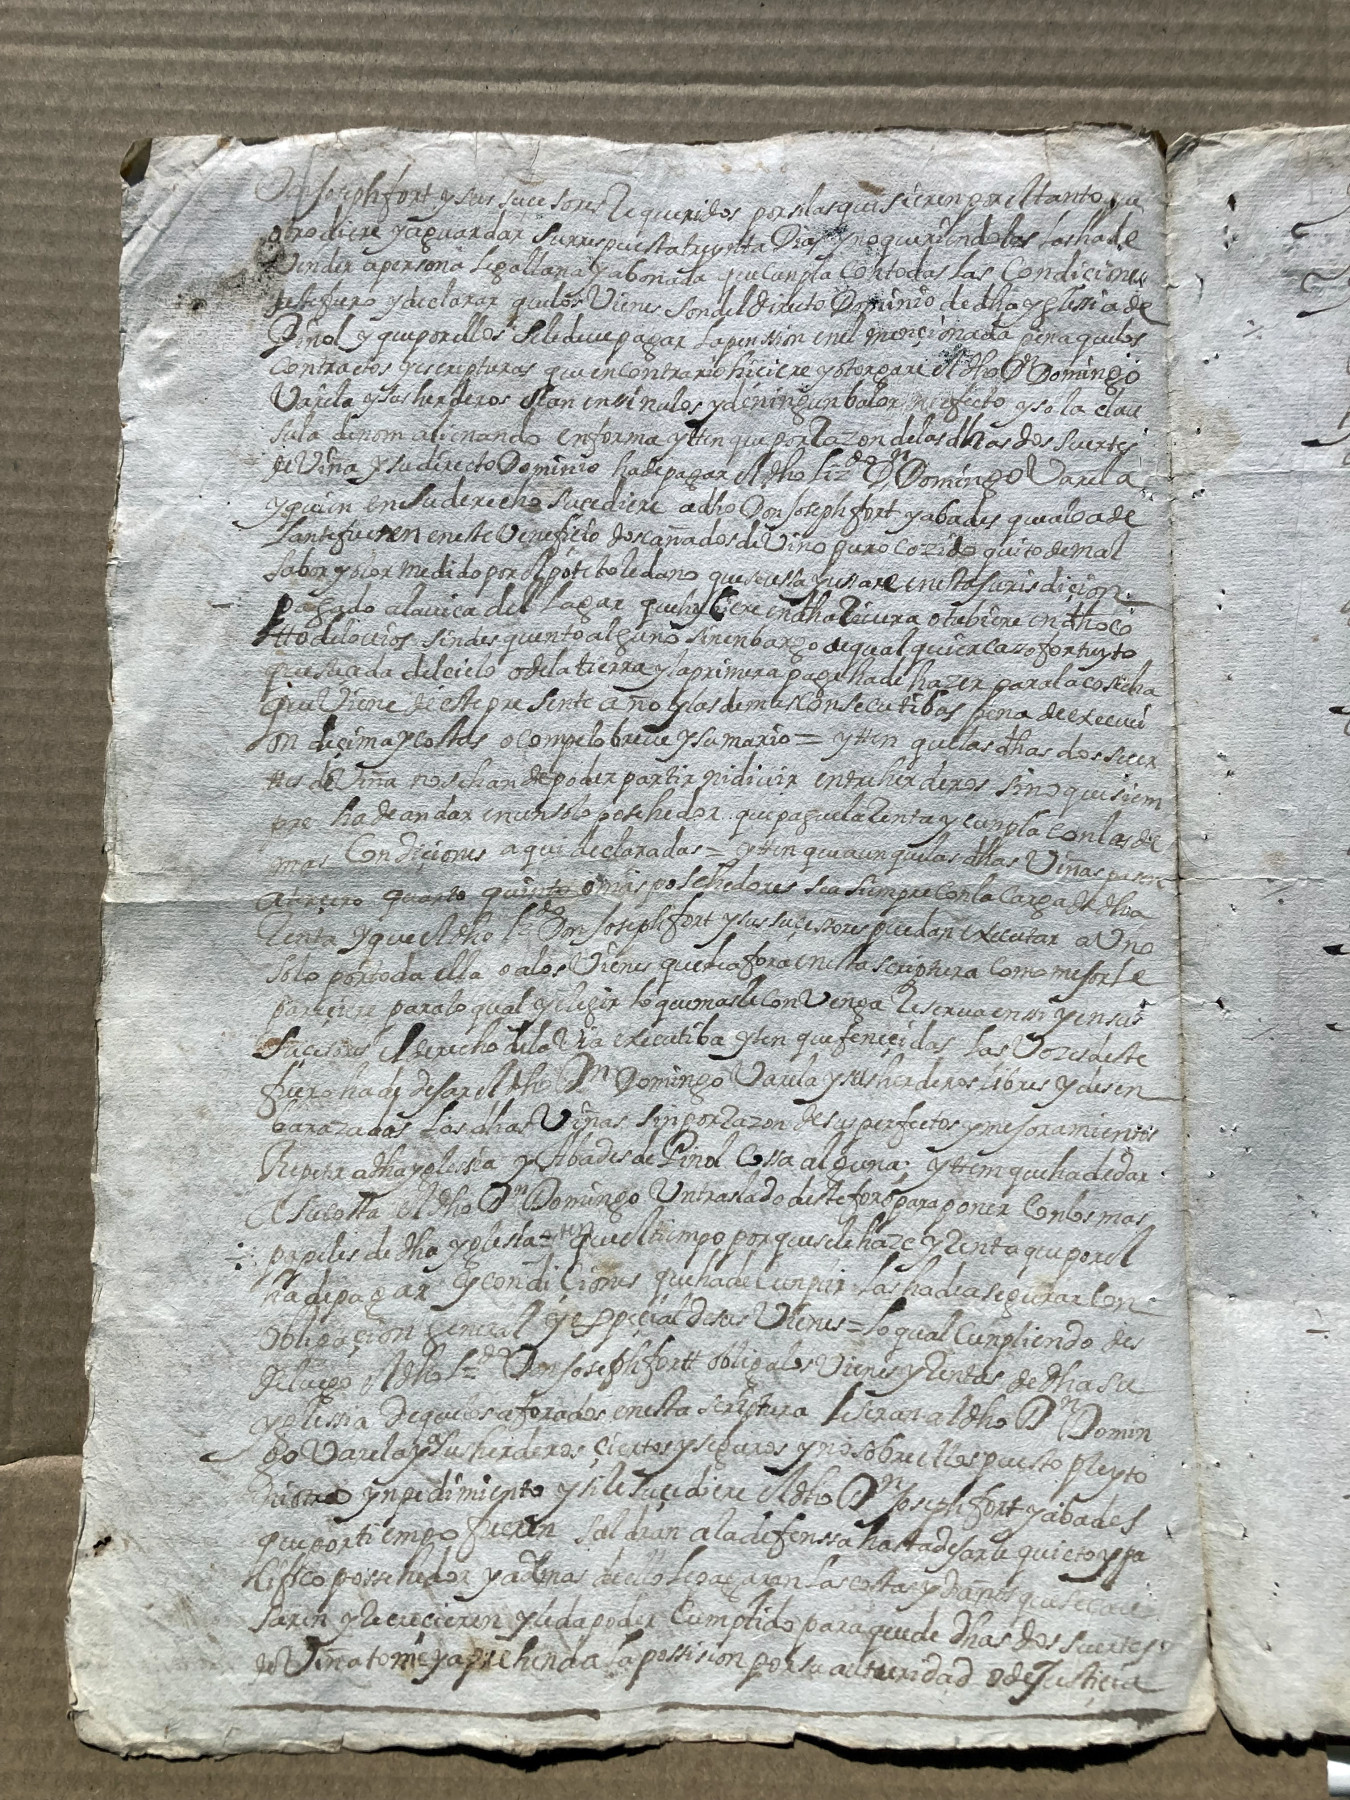 Don Joseph fort y sus sucesores Requeridos por si las quisieren por el tanto que
otro diere y aguardar su rrespuesta treynta Dias y no queriendolas las ha de
Vender a persona legallana y abonada que cunpla con todas las Condiciones
deste furo y declarar que los Vienes son del directo Dominio de dha yglesia de
Pinol y que por ellos se le deve pagar la penssion en el mencionada pena que los
contractos y escripturas que en contrario hiciere y otorgare el dho Dn Domingo
Varela y sus herderos sean en si nulos y de ningun balor ni efecto y so la clau
sula de nom alienando en forma y tten que por Razon de las dhas dos suertes
de Viña y su directo Dominio ha de pagar el dho Lizdo Dn Domingo Varela
y quien en su derecho sucediere a dho Don Joseph fort y abades que aloade
lante fueren en este Veneficio dos cañados de Vino puro cozido quito de mal
sabor y olor medido por el pote toledano que se usa y usare en esta Jurisdicion
pagado a la vica del Lagar que hubiere en dha Rivera otubiere en dho co
tto de los eiros sin desquento alguno sin enbargo de qual quier caso fortuyto
que suceda del cielo o de la tierra y la primera paga ha de hazer para la cosecha
que Viene de este presente año y las demas Consecutibas pena de execuci
on deçima y costas o compelo breve y sumario = y tten que las dhas dos suer
ttes de Viña no se han de poder partir ni diuir entre herderos sino que siem
pre ha de andar en un solo posehedor que pague la Renta y cunpla con las de
mas Condiçiones aqui declaradas = y tten que aunque las dhas Viñas pasen
a terçero quarto quinto o mas posehedores sea siempre con la Carga de dha
Renta y que el dho Ldo Don Joseph fort y sus suçesores puedan executar a Uno
solo por toda ella o a los Vienes que ba fora en esta scriptura como mejor le
pareciere para lo qual y elegir lo que mas le Convenga Reserua en si y en sus
sucesores el derecho de la Via executiba y ten que feneçidas las Vozes deste
fuero ha de dejar el dho Dn Domingo Varela y sus herderos libres y desen
barazadas las dhas Viñas sin por Razon de sus perfectos y mejoramientos
Repetir a dha yglessia y Abades de Pinol Cossa alguna; y ttem que ha de dar
A su costa el dho Dn Domingo Un traslado deste foro para poner Con los mas
papeles de dha yglesia = ytten que el tiempo porque se le haze y Renta que por el
ha de pagar y condiciones que ha de cunplir las ha de asegurar Con
obligaçion general y espeçial de sus Vienes = lo qual Cunpliendo des
de luego el dho Ldo Don Joseph fortt obliga los Vienes y Rentas de dha su
yglessia de que los aforados en esta scriptura le seran al dho Dn Domin
go Varela y a sus herderos çiertos y seguros y no sobre ellos puesto pleyto
ni otro ynpedimiento y si le sucediere el dho Dn Joseph fort y abades
que por tiempo fueren saldran a la defenssa hasta dejarle quieto y pa
cifico possehedor y ademas de ello le pagaran las costas y daños que se cau
saren y Recrecieren y le da poder Cumplido para que de dhas dos suertes
de Viña tome y aprehenda la possision por su auturidad o de Justiçia